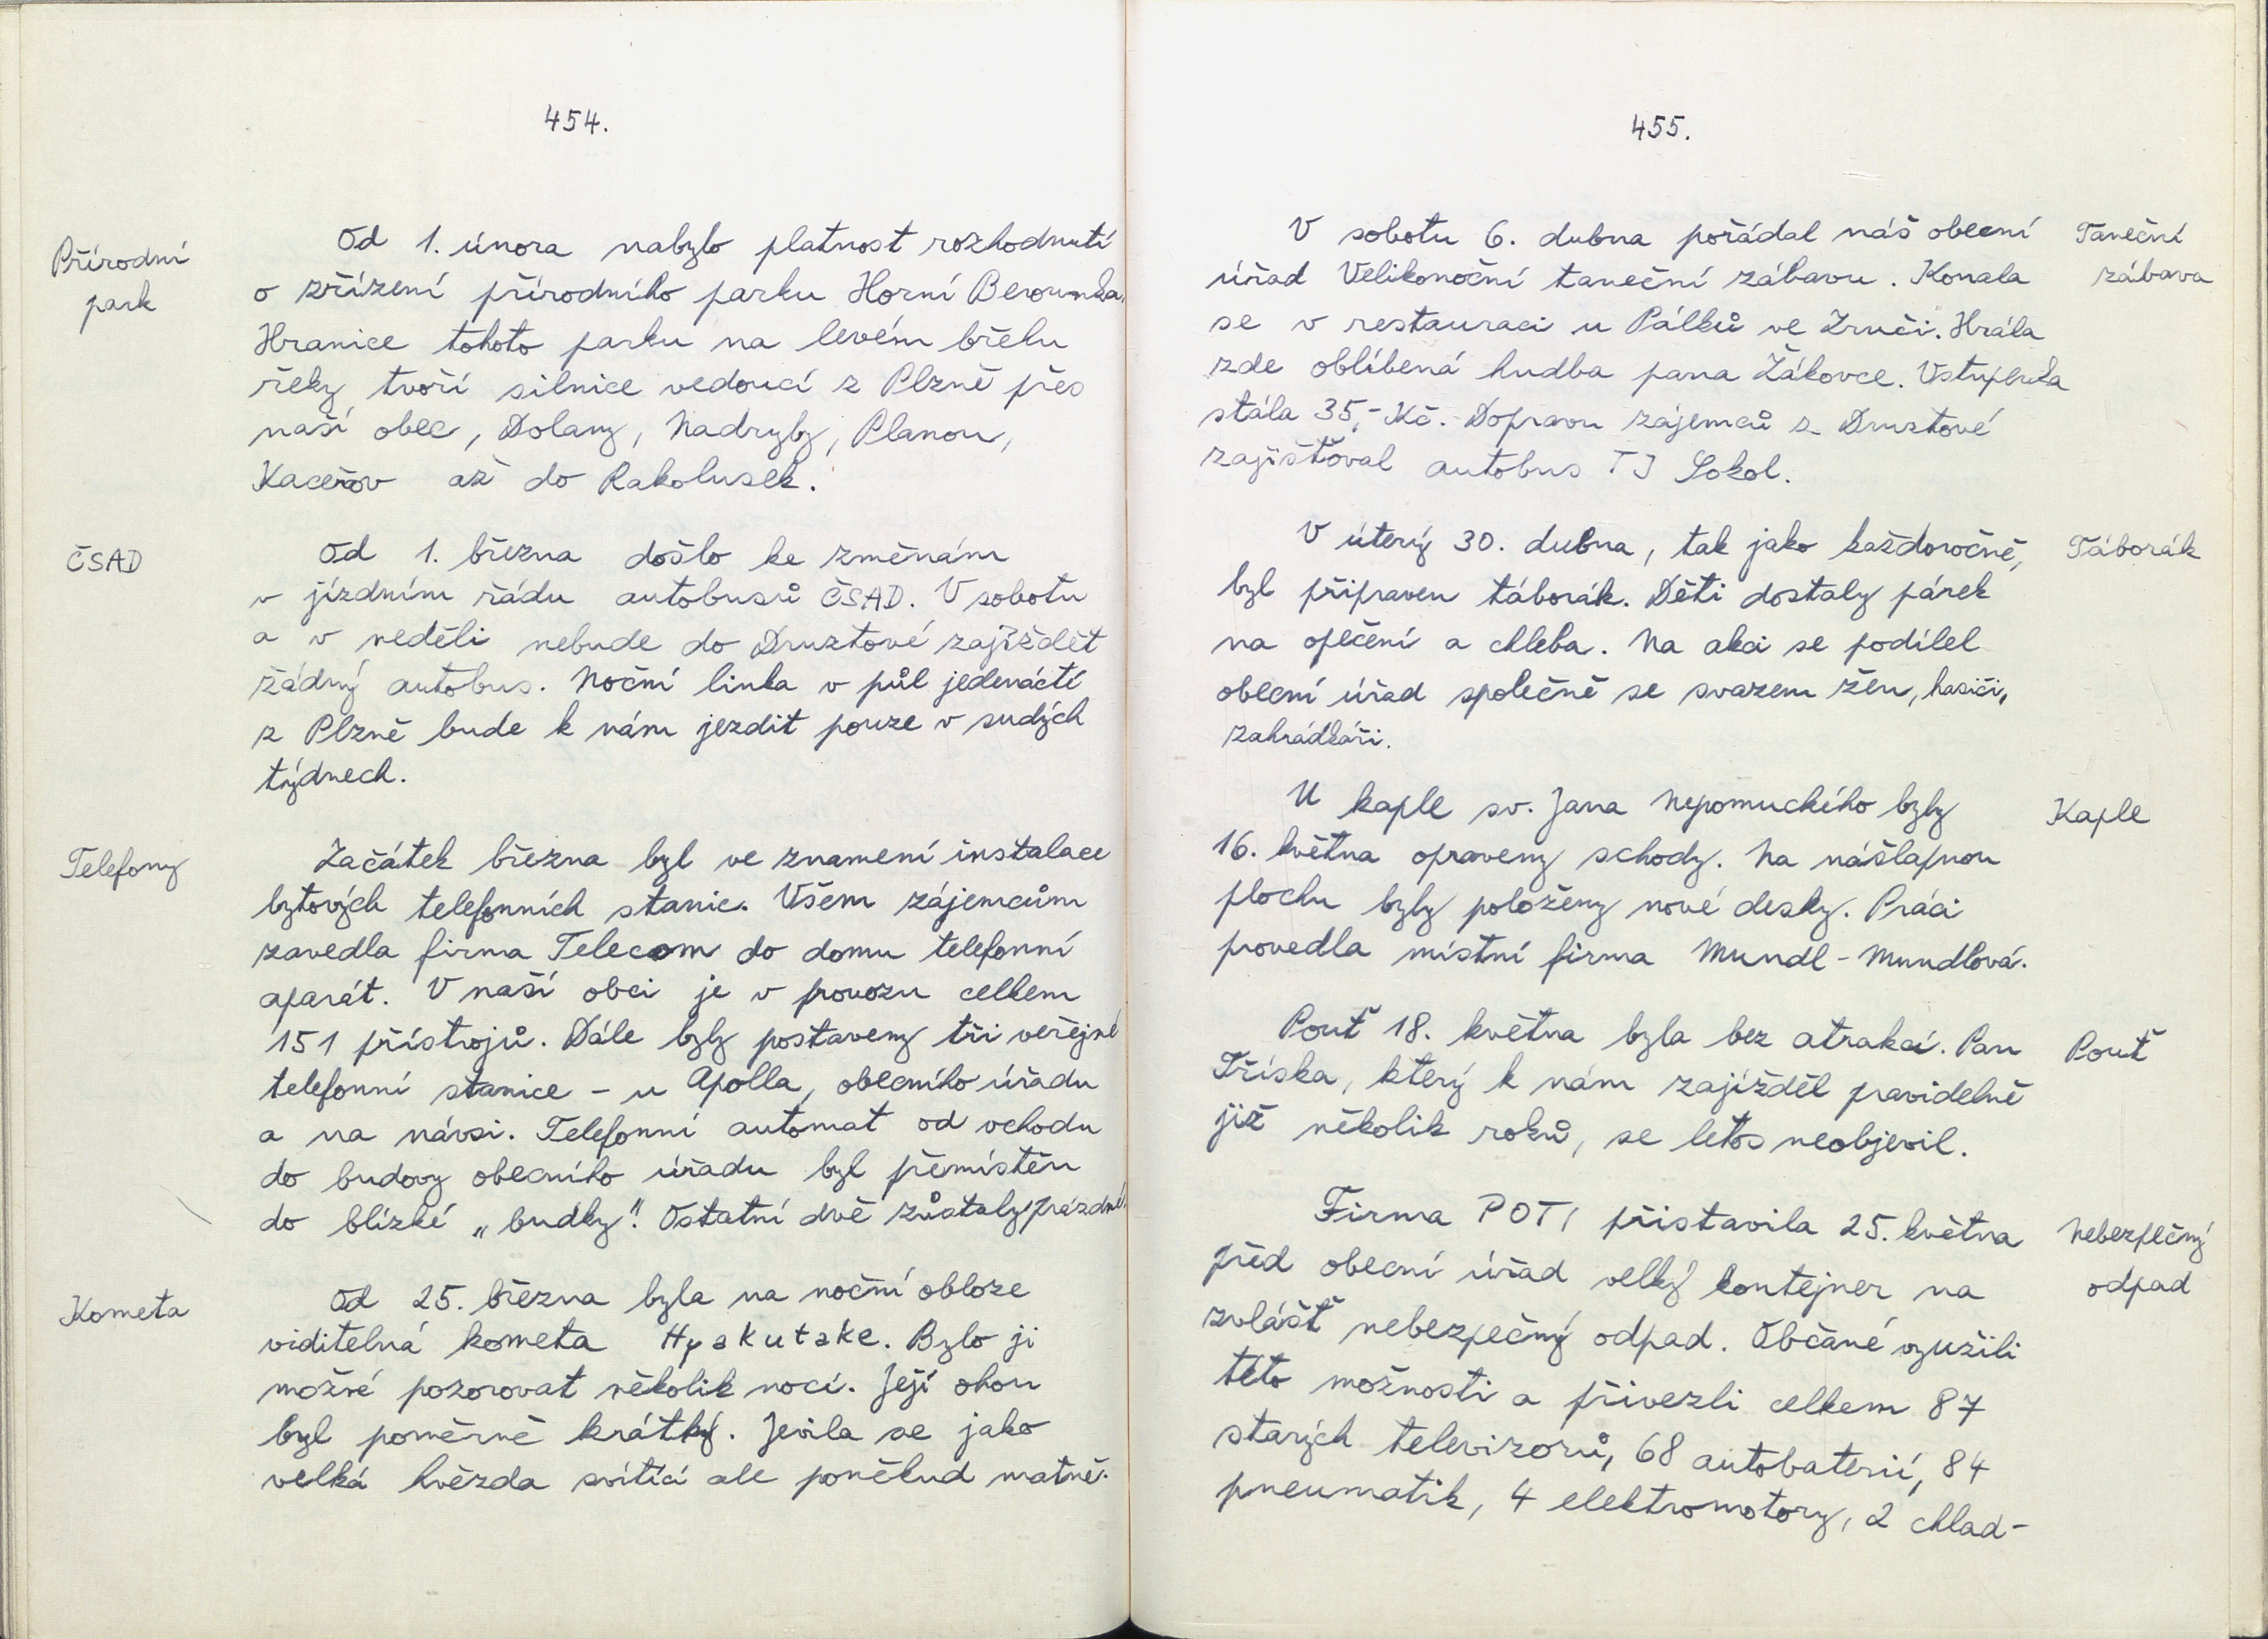 454.
Přírodní
park
Od 1. února nabylo platnost rozhodnutí
o zřízení přírodního parku Horní Berounka.
Hranice tohoto parku na levém břehu
řeky tvoří silnice vedoucí z Plzně přes
naší obec, Dolany, Nadryby, Planou,
Kaceřov až do Rakolusek.
ČSAD
Od 1. března došlo ke změnám
v jízdním řádu autobusů ČSAD. V sobotu
a v neděli nebude do Druztové zajíždět
žádný autobus. Noční linka v půl jedenácti
z Plzně bude k nám jezdit pouze v sudých
týdnech.
Telefony
Začátek března byl ve znamení instalace
bytových telefonních stanic. Všem zájemcům
zavedla firma Telecom do domu telefonní
aparát. V naší obci je v provozu celkem
151 přístrojů. Dále byly postaveny tři veřejné
telefonní stanice - u Apolla, obecního úřadu
a na návsi. Telefonní automat od vchodu
do budovy obecního úřadu byl přemístěn
do blízké „budky". Ostatní dvě zůstaly prázdné.
Kometa
Od 25. března byla na noční obloze
viditelná kometa Hyakutake. Bylo ji
možné pozorovat několik nocí. Její ohon
byl poměrně krátký. Jevila se jako
velká hvězda svítící ale poněkud matně.
455.
V sobotu 6. dubna pořádal náš obecní
úřad Velikonoční taneční zábavu. Konala
se v restauraci u Pálků ve Zruči. Hrála
zde oblíbená hudba pana Žákovce. Vstupenka
stála 35,- Kč. Dopravu zájemců z Druztové
zajišťoval autobus TJ Sokol.
Taneční
zábava
V úterý 30. dubna, tak jako každoročně,
byl připraven táborák. Děti dostaly párek
na opečení a chleba. Na akci se podílel
obecní úřad společně se svazem žen, hasiči,
zahrádkáři.
Táborák
U kaple sv. Jana Nepomuckého byly
16. května opraveny schody. Na nášlapnou
plochu byly položeny nové desky. Práci
provedla místní firma Mundl - Mundlová.
Kaple
Pouť 18. května byla bez atrakcí. Pan
Tříska, který k nám zajížděl pravidelně
již několik roků, se letos neobjevil.
Pouť
Firma POTI přistavila 25. května
před obecní úřad velký kontejner na
zvlášť nebezpečný odpad. Občané využili
této možnosti a přivezli celkem 87
starých televizorů, 68 autobaterií, 84
pneumatik, 4 elektromotory, 2 chlad-
Nebezpečný
odpad